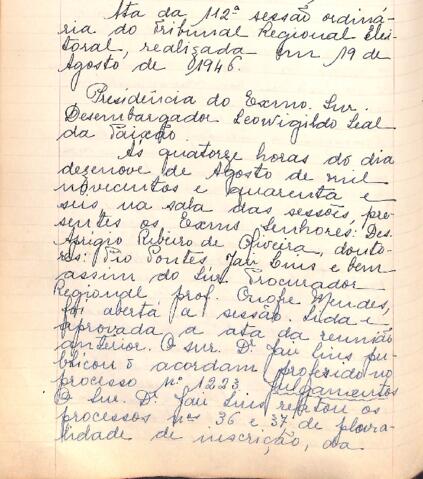 Ata da 112ª sessão ordiná-
ria do Tribunal Regional Elei-
toral, realizada em 19 de
Agosto de 1946.
Presidência do Exmo. Snr.
Desembargador Leovigildo Leal
da Paixão.
Ás quatorze horas do dia
dezenove de Agosto de mil
novecentos e quarenta e
seis na sala das sessões, pre-
sentes os Exmos Senhores: Des.
Aprigio Ribeiro de Oliveira, douto-
res: Pio Pontes, Jair Lins e bem
assim do Snr. Procurador
Regional, prof. Onofre Mendes,
foi aberta a sessão. Lida e
aprovada a ata da reunião
anterior. O snr. Dr. Jair Lins pu-
blicou o acordam proferido no
processo nº 1223 Julgamentos
O Snr. Dr. Jair Lins relatou os
processos nºs 36 e 37, de plura-
lidade de inscrição, da